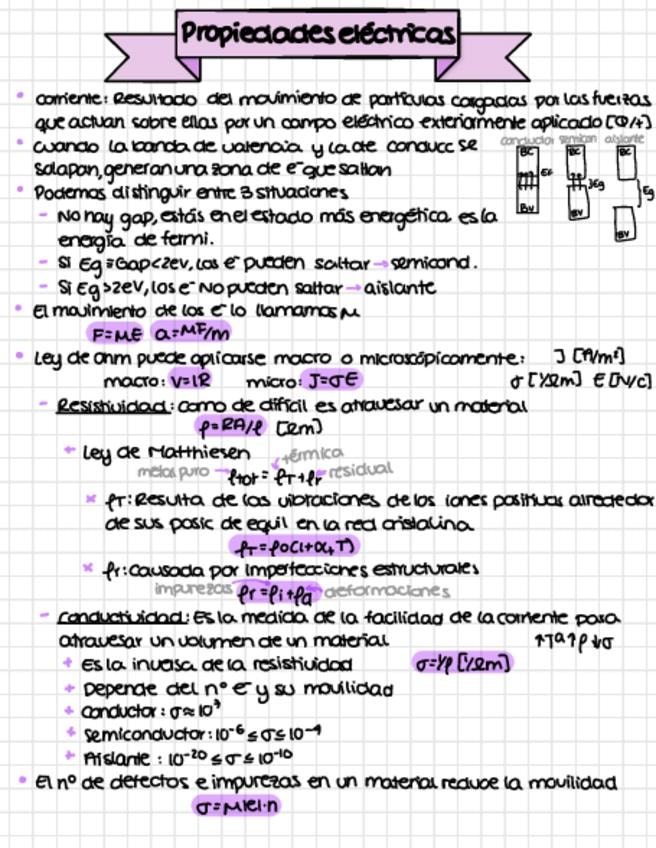 Propiedades eléctricas
• corriente: Resultado del movimiento de partículas cargadas por las fuerzas
que actuan sobre ellas por un campo eléctrico exteriormente aplicado [Q/t]
• cuando la banda de valencia y la de conducc se
solapan, generan una zona de e⁻ que saltan
conductor semicon aislante
BC BC BC
EF }Eg }Eg
BV BV BV
• Podemos distinguir entre 3 situaciones
- No hay gap, estás en el estado más energética es la
energía de fermi.
- Si Eg ≡ Gap<2eV, los e⁻ pueden saltar → semicond.
- Si Eg>2eV, los e⁻ No pueden saltar → aislante
• El movimiento de los e⁻ lo llamamos μ
F=ME a=MF/m
• Ley de ohm puede aplicarse macro o microscópicamente: J [A/m²]
macro: V=IR micro: J=σE σ [1/Ωm] E [N/C]
- Resistividad: como de difícil es atravesar un material
ρ=RA/l [Ωm]
Ley de Matthiesen
térmica
metal puro → ρtot = ρT+ρr residual
× ρT: Resulta de las vibraciones de los iones positivos alrededor
de sus posic de equil en la red cristalina.
ρT=ρ0(1+αtT)
× ρr: Causada por imperfecciones estructurales
impurezas ρr=ρi+ρd deformaciones
- Conductividad: Es la medida de la facilidad de la corriente para
atravesar un volumen de un material ↑Tª↑ρ↓σ
+ Es la inversa de la resistividad σ=1/ρ [1/Ωm]
+ Depende del nº e⁻ y su movilidad
+ Conductor: σ≈10⁷
+ Semiconductor: 10⁻⁶ ≤ σ ≤ 10⁻⁴
+ Aislante: 10⁻²⁰ ≤ σ ≤ 10⁻¹⁰
• El nº de defectos e impurezas en un material reduce la movilidad
σ=μ|e|·n